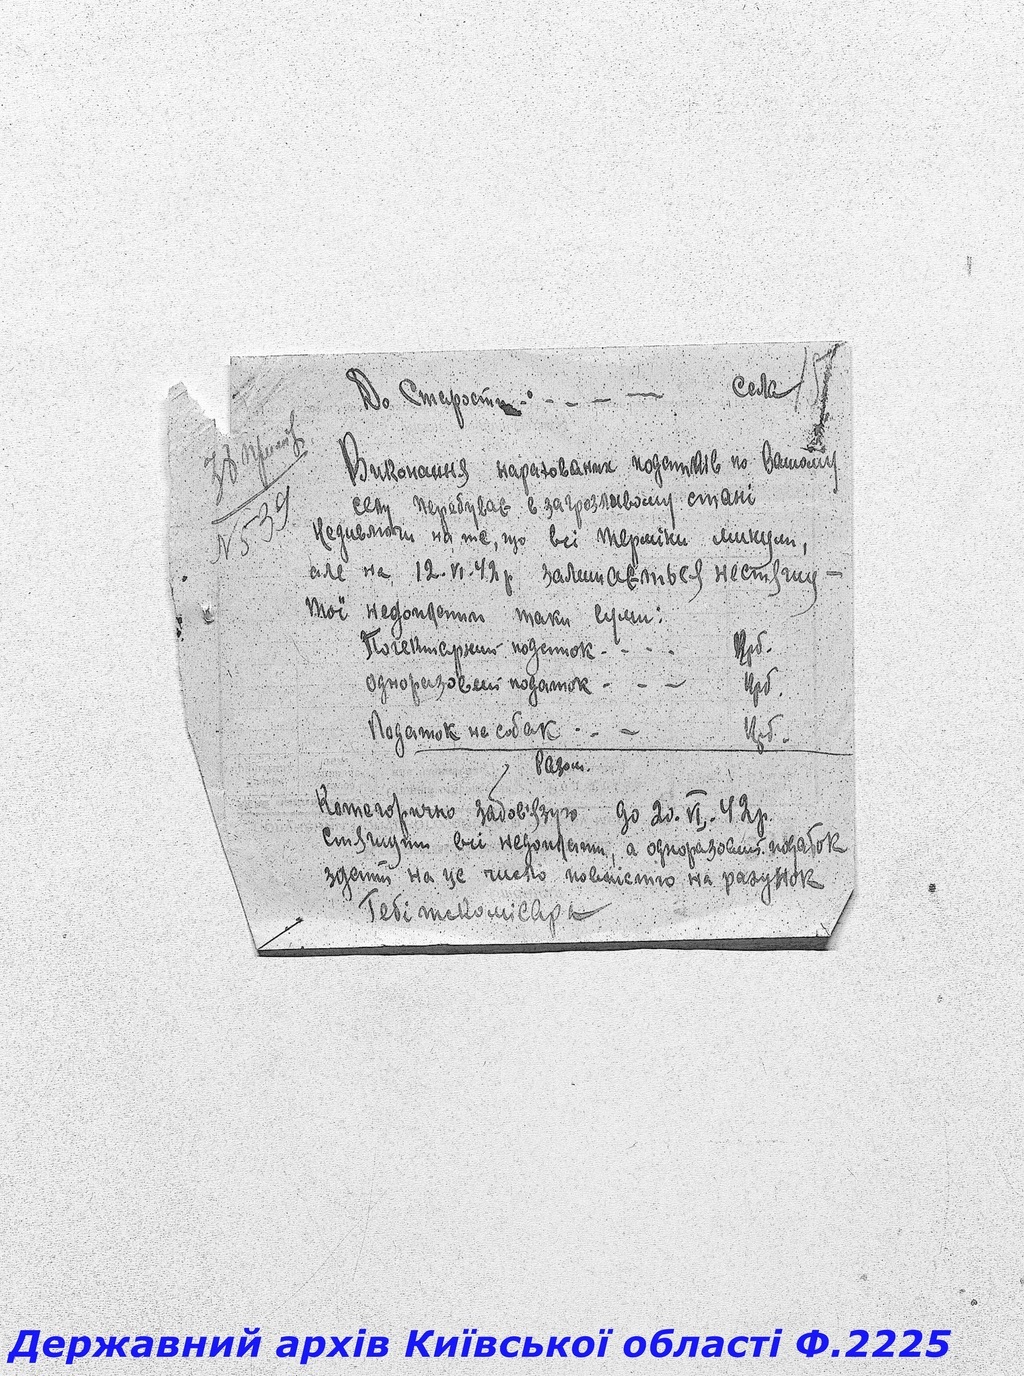 До Старости - - - - села
15
38 прим.
N 539
Виконання нарахованих податків по Вашому
селу перебуває в загрозливому стані
Недивлючи на те, що всі терміни минули,
але на 12.VI.42р залишається нестягну-
тої недоплати таки суми:
Погектарний податок - - - - Крб.
одноразовий податок - - - Крб.
Податок на собак - - - Крб.
Разом.
Категорично зобов'язую до 20.VI.42р.
стягнути всі недоплати, а одноразовий податок
здати на це число повністю на рахунок
Гебітскомісара
Державний архів Київської області Ф.2225